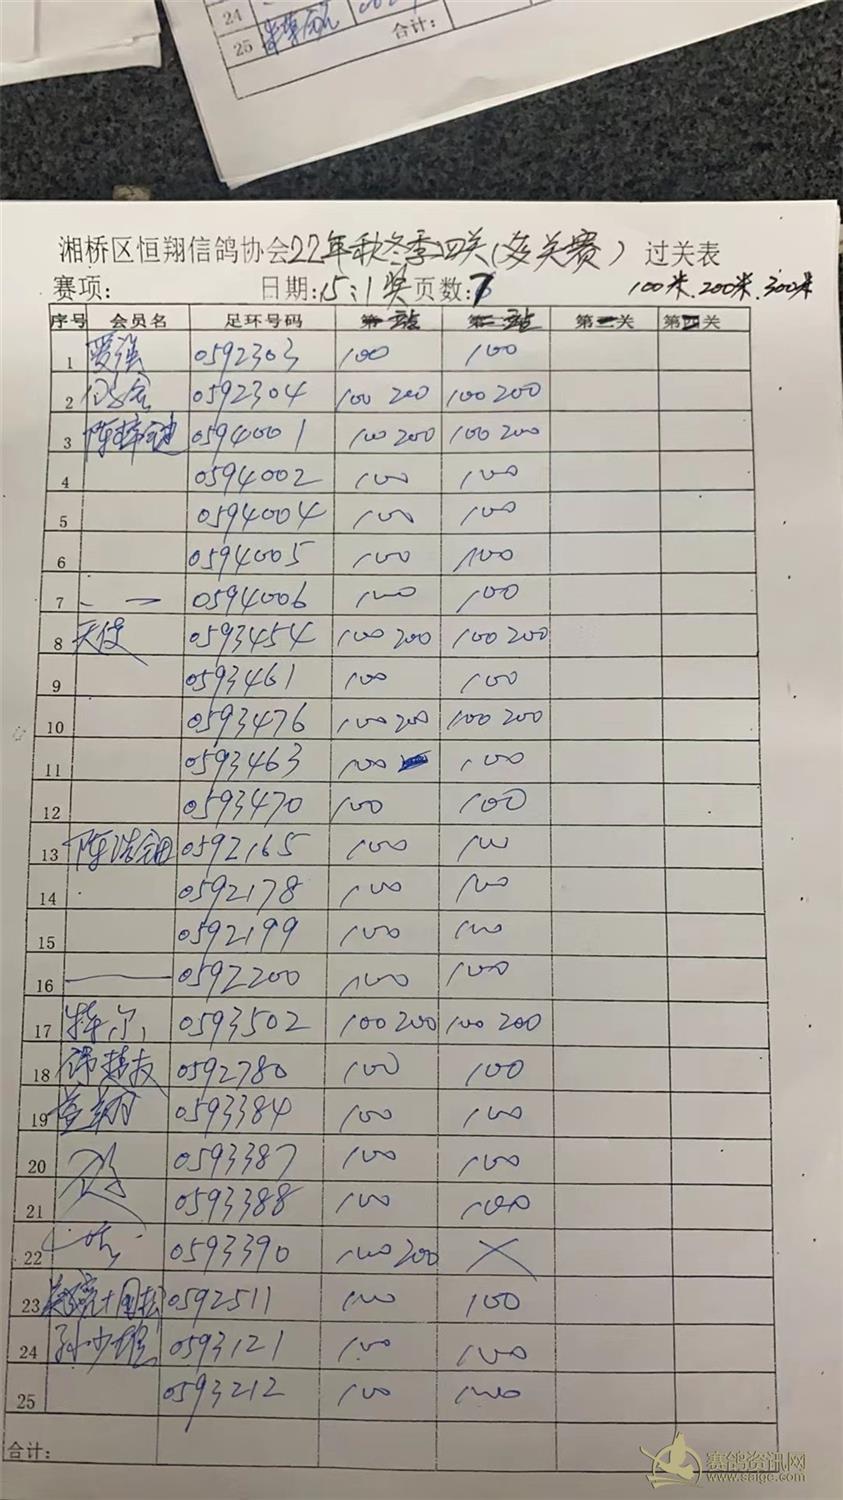 24
25
合计:
湘桥区恒翔信鸽协会22年秋冬季四关(多关赛) 过关表
赛项: 日期:15:1奖页数:7 100米.200米.300米
序号 会员名 足环号码 第一站 第二站 第三关 第四关
1 爱强 0592303 100 100
2 0592304 100 200 100 200
3 陈梓 0594001 100 200 100 200
4 0594002 100 100
5 0594004 100 100
6 0594005 100 100
7 0594006 100 100
8 天使 0593454 100 200 100 200
9 0593461 100 100
10 0593476 100 200 100 200
11 0593463 100 100
12 0593470 100 100
13 陈浩钿 0592165 100 100
14 0592178 100 100
15 0592199 100 100
16 0592200 100 100
17 0593502 100 200 100 200
18 0592780 100 100
19 0593384 100 100
20 0593387 100 100
21 0593388 100 100
22 0593390 100 200 X
23 0592511 100 100
24 孙少雄 0593121 100 100
25 0593212 100 100
合计:
赛鸽资讯网
www.saige.com